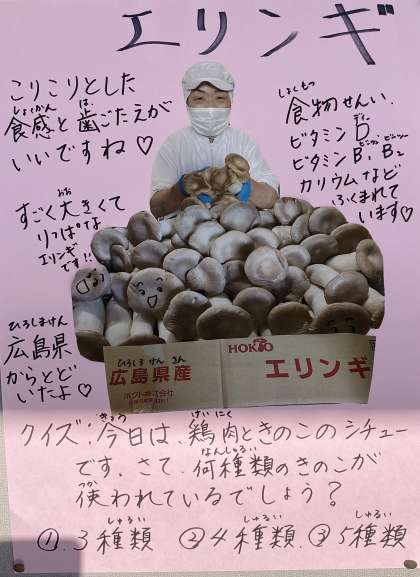 エリンギ
こりこりとした
食感と歯ごたえが
しょっかん は
いいですね♡
すごく大きくて
おお
りっぱな
エリンギ
です!!
ひろしまけん
広島県
からとど
いたよ♡
しょくもつ
食物せんい、
ビタミンD、
ディー
ビタミンB₁、B₂
カリウムなど
ふくまれて
います♡
ひろしま けん さん
広島県産
HOKTO
エリンギ
ホクト株式会社
きょう けいにく
クイズ:今日は、鶏肉ときのこのシチュー
なんしゅるい
です。さて、何種類のきのこが
つか
使われているでしょう?
しゅるい しゅるい しゅるい
①3種類 ②4種類 ③5種類